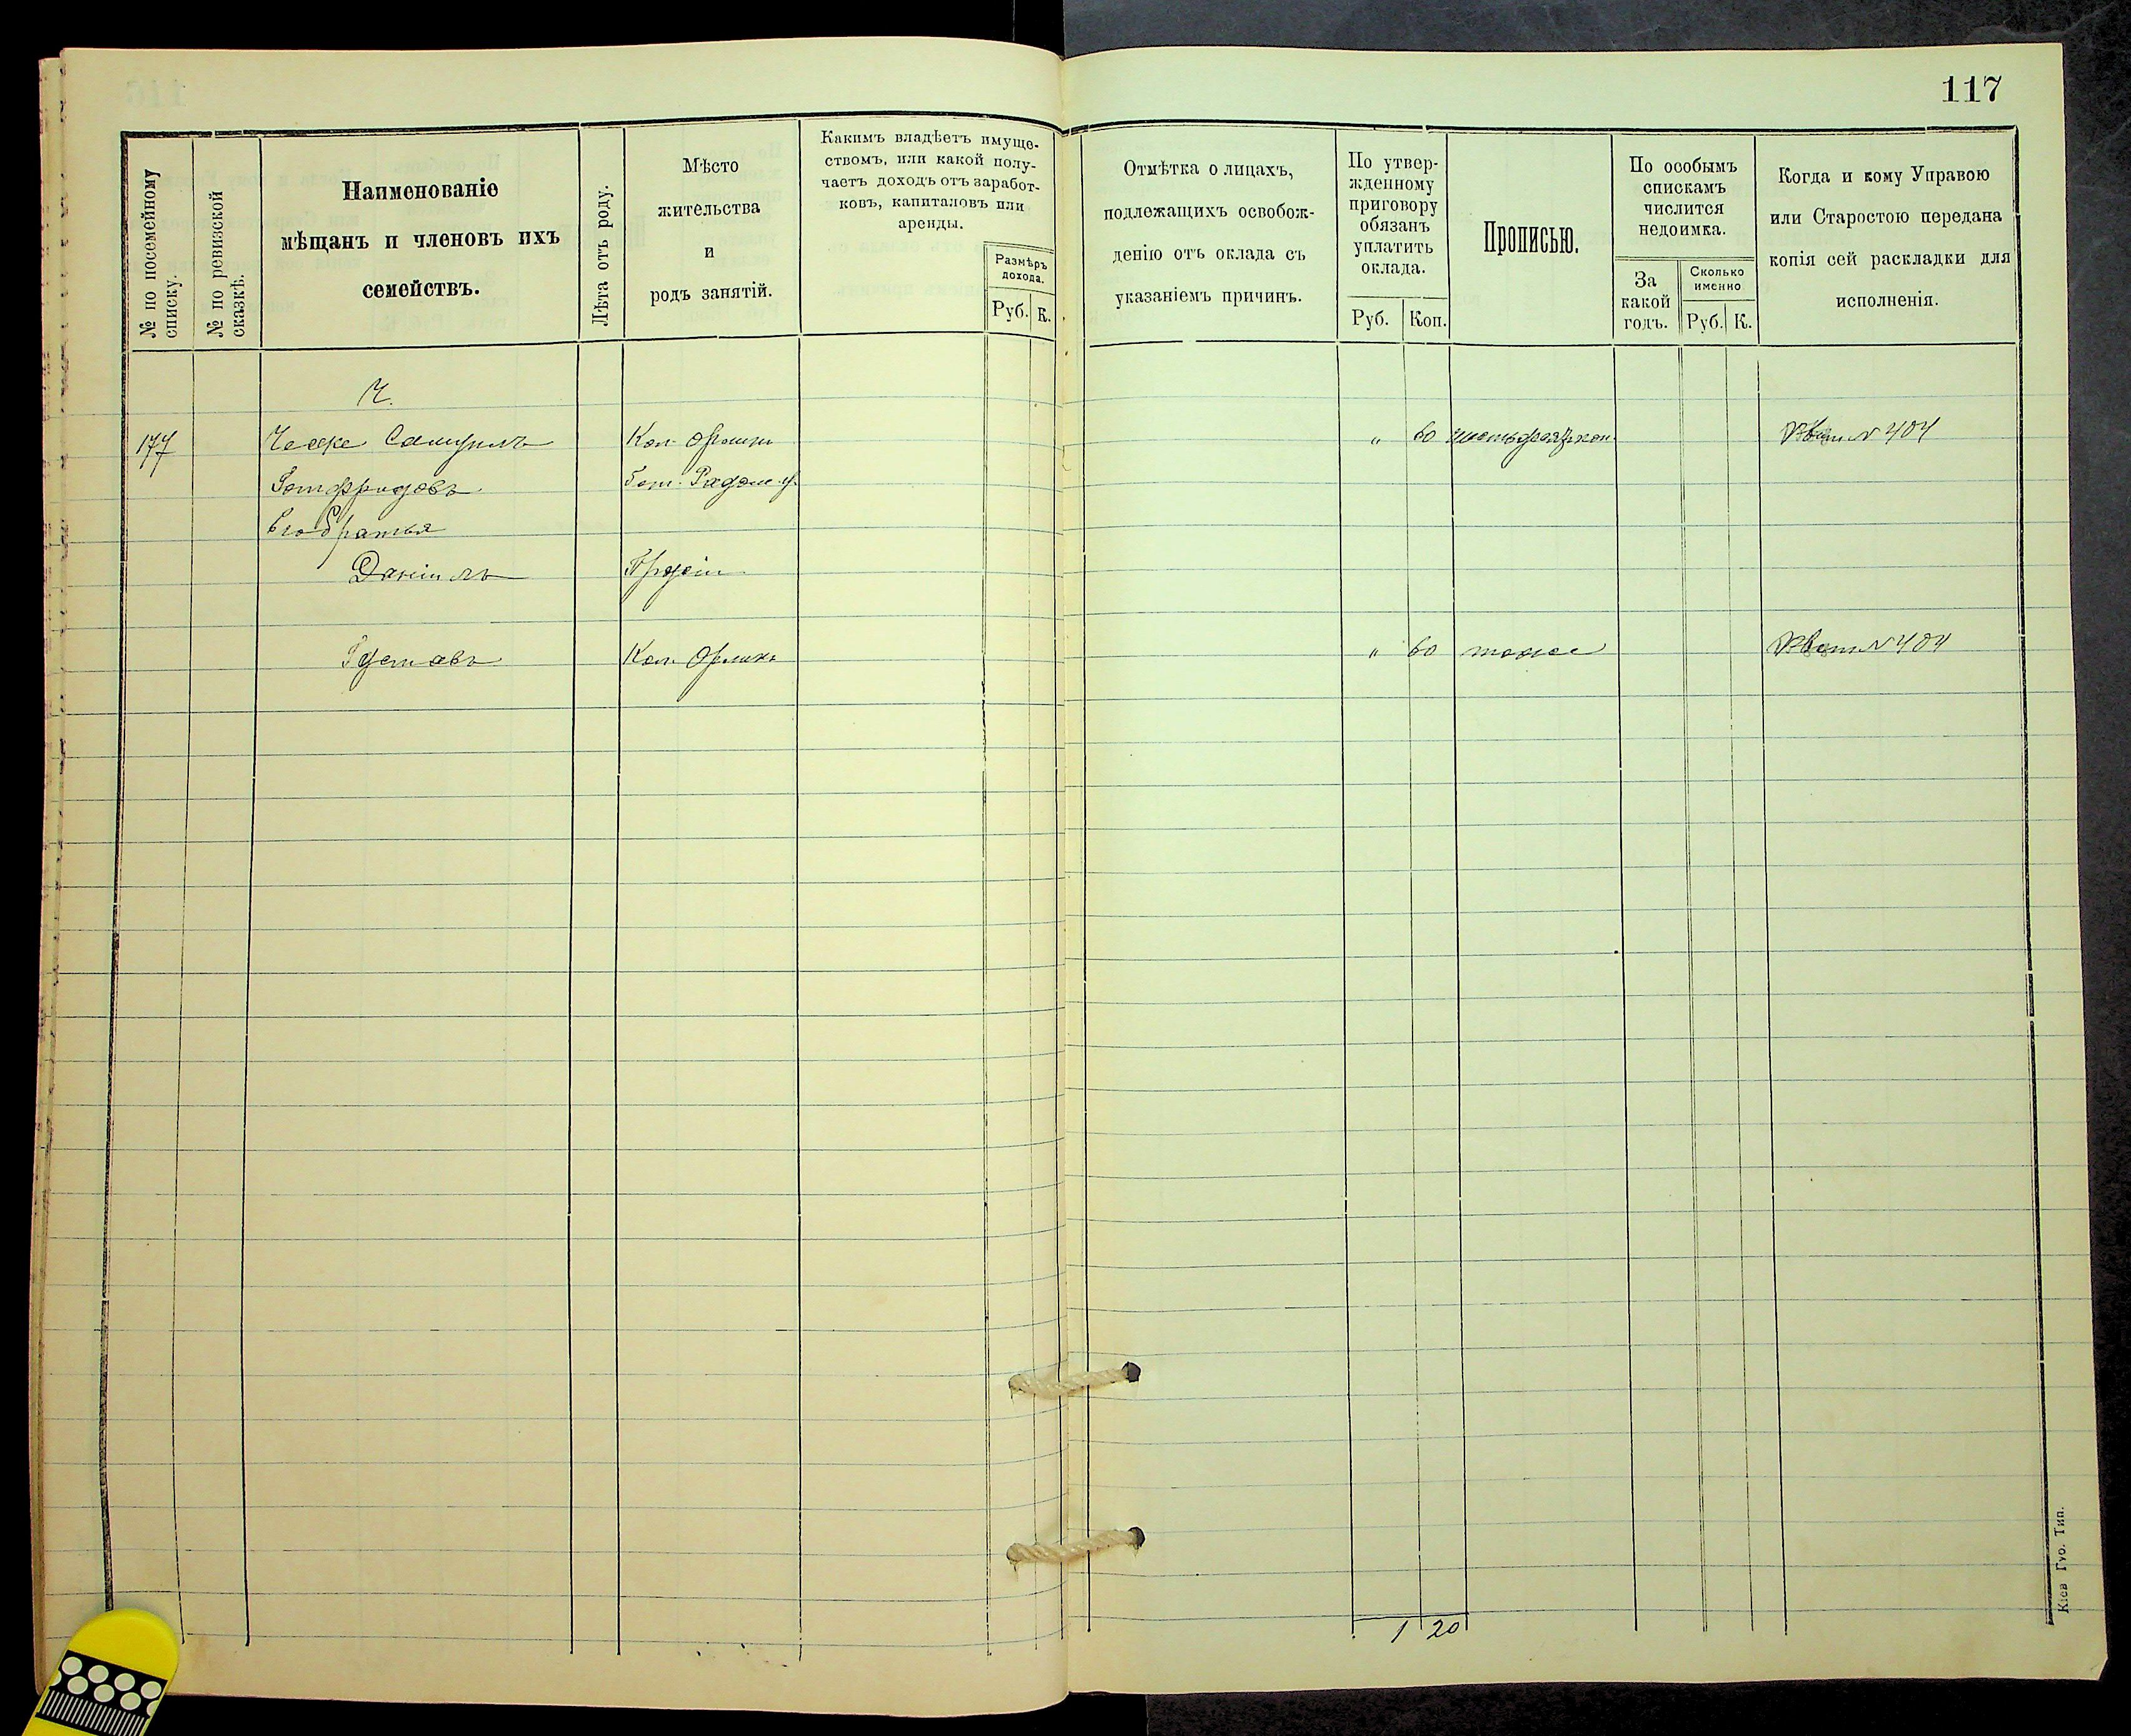 117
№ по посемейному
списку.
№ по ревизской
сказкѣ.
Наименованіе
мѣщанъ и членовъ ихъ
семействъ.
Лѣта отъ роду.
Мѣсто
жительства
и
родъ занятій.
Какимъ владѣетъ имуще-
ствомъ, или какой полу-
чаетъ доходъ отъ заработ-
ковъ, капиталовъ или
аренды.
Размѣръ
дохода.
Руб. К.
Отмѣтка о лицахъ,
подлежащихъ освобож-
денію отъ оклада съ
указаніемъ причинъ.
По утвер-
жденному
приговору
обязанъ
уплатить
оклада.
Руб. Коп.
Прописью.
По особымъ
спискамъ
числится
недоимка.
За
какой
годъ.
Сколько
именно
Руб. К.
Когда и кому Управою
или Старостою передана
копія сей раскладки для
исполненія.
Ч.
177 Ческе Самуилъ Кол. Орлики „ 60 шестьдесят коп. Квит № 404
Готфридовъ
Его братья
Даніилъ
Густавъ Кол. Орлики „ 60 тоже Квит № 404
1 20
Кіев Губ. Тип.